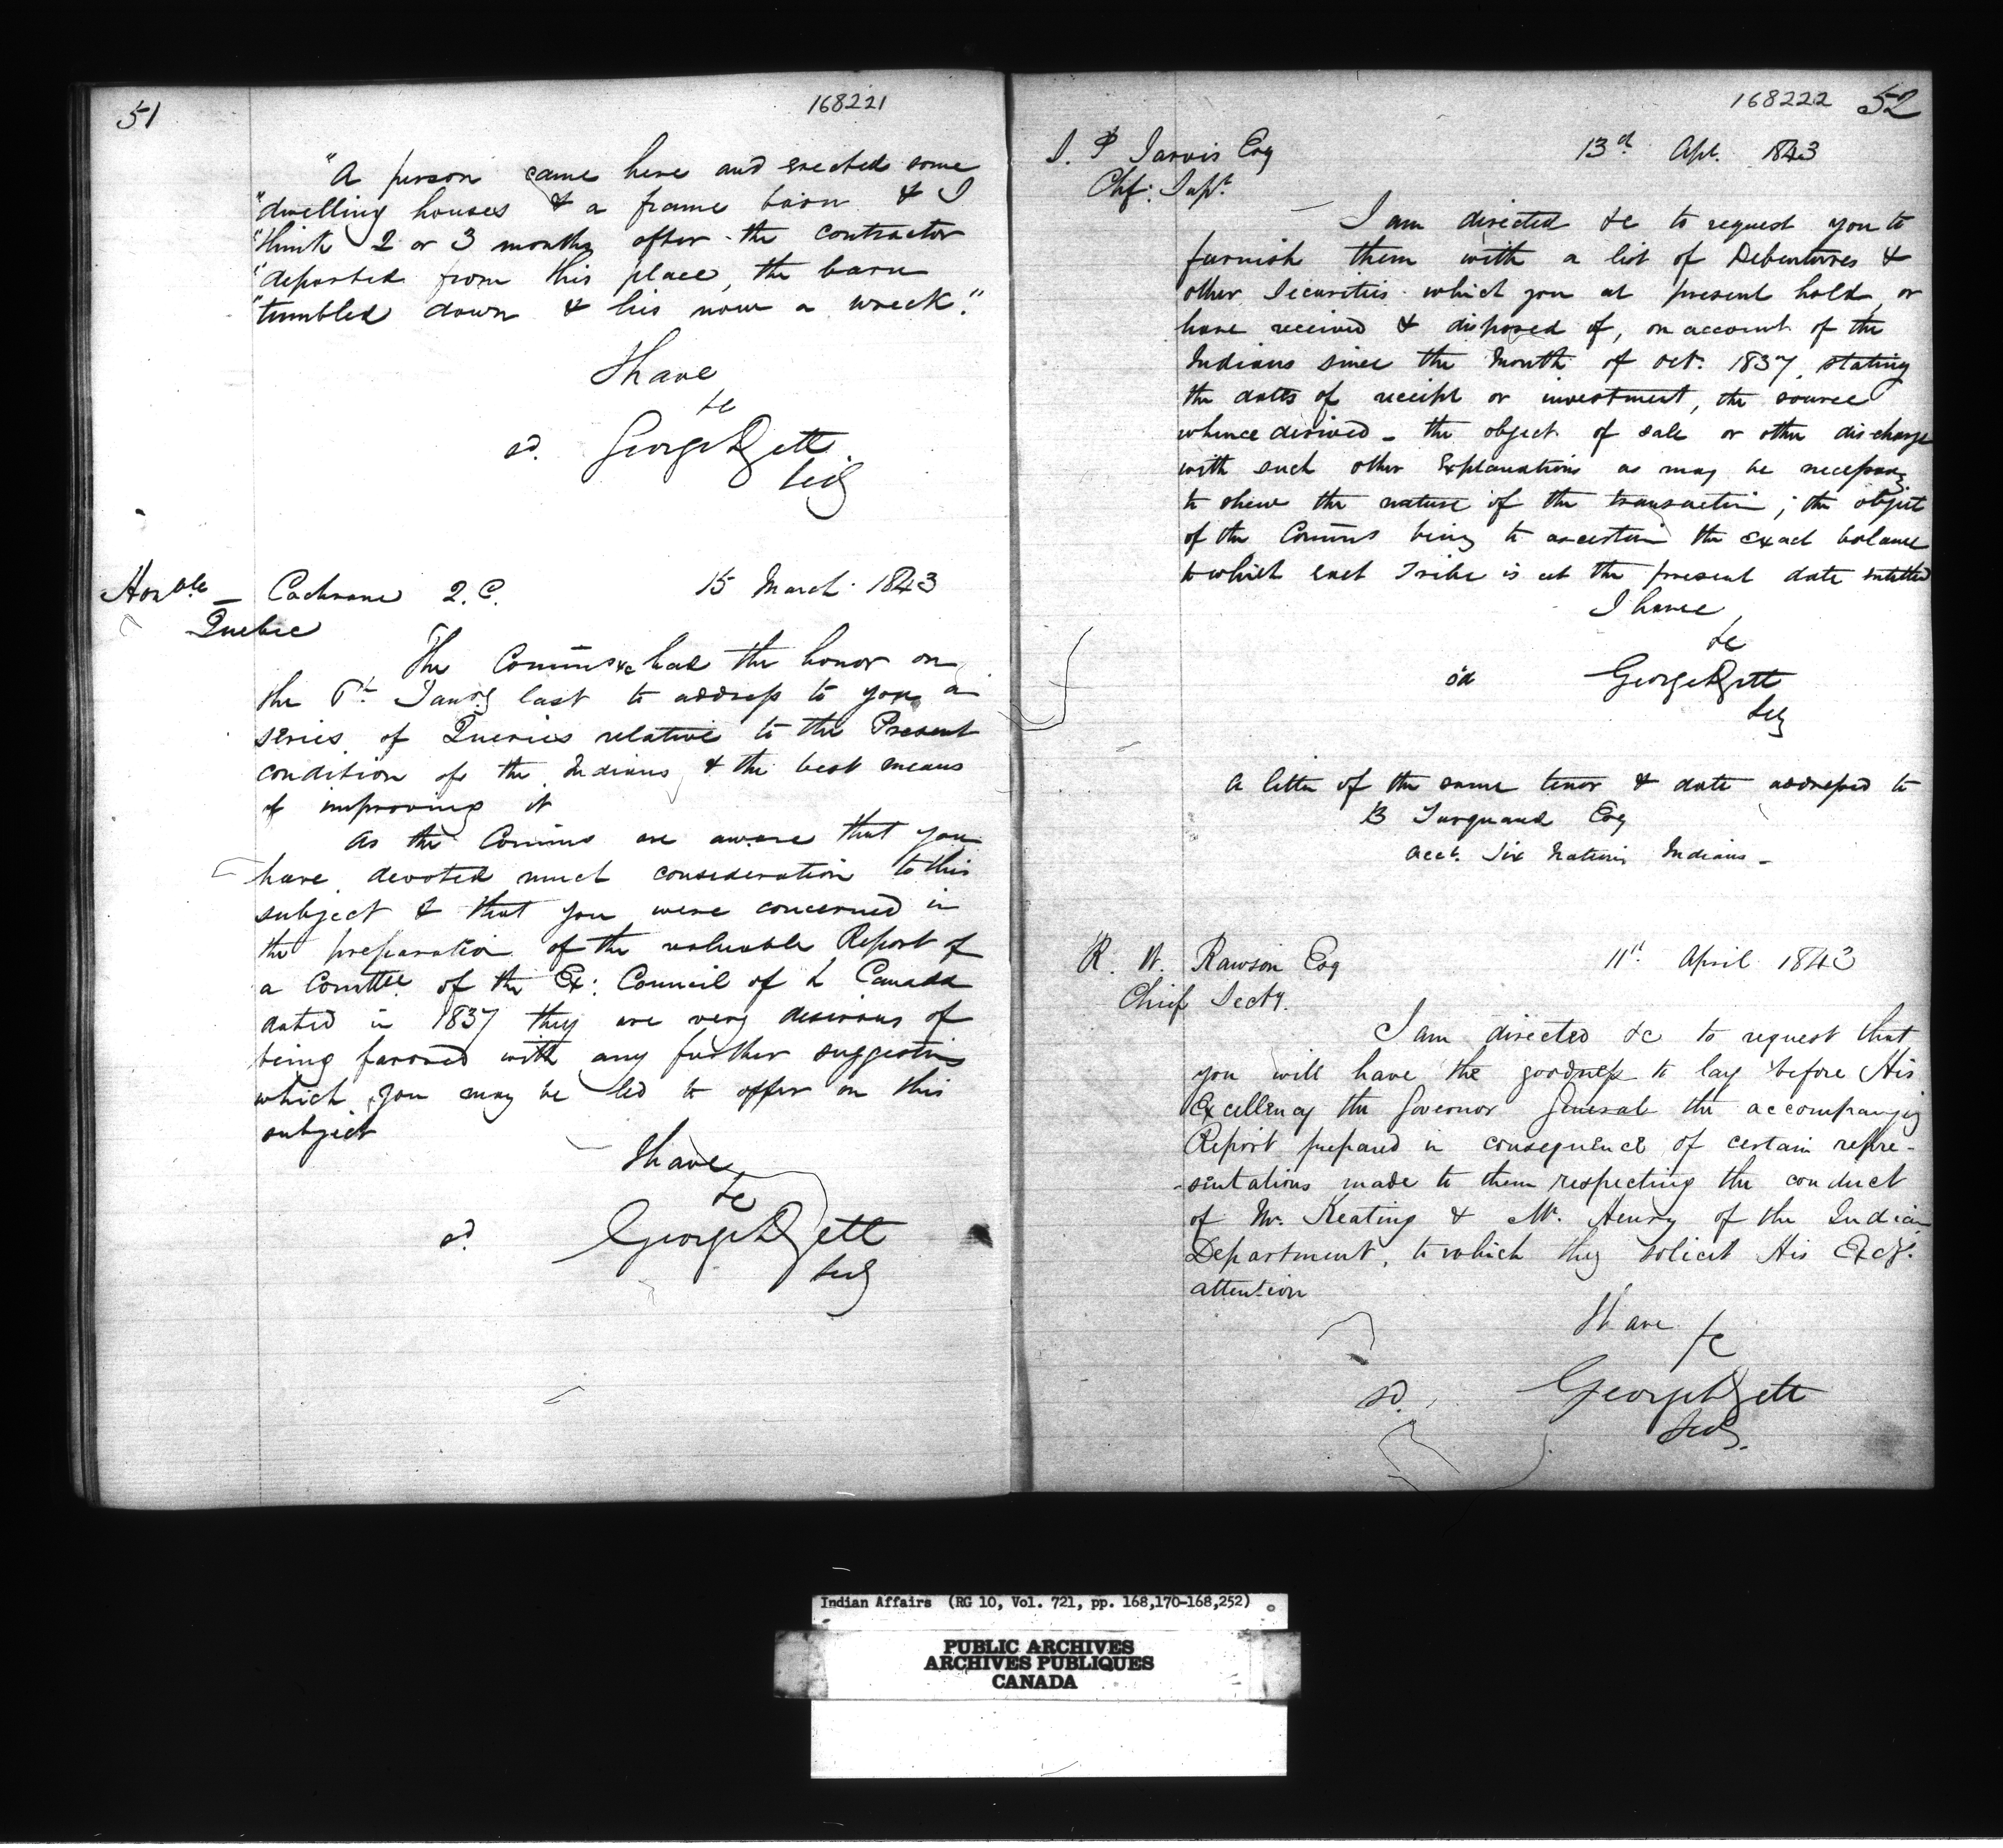 51
168221
"A person came here and erected some
"dwelling houses & a frame barn & I
"think 2 or 3 months after the contractor
"departed from this place, the barn
"tumbled down & lies now a wreck."
I have
&c
sd. George
Secy
Honble — Cochrane Q.C. 15 March 1843
Quebec
The Commrs &c had the honor on
the 6th Jany last to address to you a
series of Queries relative to the Present
condition of the Indians & the best means
of improving it
As the Commrs are aware that you
have devoted much consideration to this
subject & that you were concerned in
the preparation of the valuable Report of
a Comttee of the Ex: Council of L Canada
dated in 1837 they are very desirous of
being favored with any further suggestions
which you may be led to offer on this
subject
I have
&c
sd. George
Secy
168222 52
S. P Jarvis Esq 13th Apl. 1843
Chf: Supt.
I am directed &c to request you to
furnish them with a list of Debentures &
other Securities which you at present hold, or
have received & disposed of, on account of the
Indians since the Month of Oct. 1837, stating
the dates of receipt or investment, the source
whence derived — the object of sale or other discharge
with such other Explanations as may be necessary
to shew the nature of the transaction; the object
of the Commrs being to ascertain the exact balance
to which each Tribe is at the present date entitled
I have
&c
sd George
Secy
A letter of the same tenor & date addressed to
B Turquand Esq
Acct. Six Nations Indians —
R. W. Rawson Esq 11th April 1843
Chief Secty.
I am directed &c to request that
you will have the goodness to lay before His
Excellency the Governor General the accompanying
Report prepared in consequence of certain repre-
-sentations made to them respecting the conduct
of Mr. Keating & Mr. Henry of the Indian
Department, to which they solicit His Excy.
attention
I have
&c
sd. George
Secy.
Indian Affairs (RG 10, Vol. 721, pp. 168,170-168,252)
PUBLIC ARCHIVES
ARCHIVES PUBLIQUES
CANADA